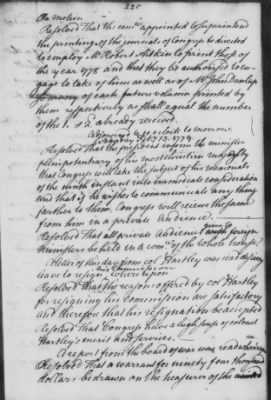 220
On motion
Resolved That the com.ee appointed to superintend
the printing of the journals of Congress be directed
to employ Mr Robert Aitkin to print those of
the year 1778 and that they be authorized to en-
gage to take of him as well as of Mr John Dunlap
as many of each future volume printed by
them respectively as shall equal the number
of the 1. & 2 already received.
Adjourned to 10 o Clock to morrow.
1779.
Resolved That the president inform the minister
plenipotentiary of his most christian majesty
that Congress will take the subject of his memorials
of the ninth instant into immediate consideration
and that if he wishes to communicate any thing
farther to them, Congress will receive the same
from him in a private Audience.
Resolved That all private Audiences given to foreign
ministers be held in a com.ee of the whole house.
A letter of this day from col Hartley was read desiring
leave to resign his Commission
Resolved That the reasons offered by col Hartley
for resigning his Commission are satisfactory
and therefore that his resignation be accepted
Resolved That Congress have a high sense of colonel
Hartley's merit and services.
A report from the board of war was read whereupon
Resolved That a warrant for ninety four thousand
dollars be drawn on the treasurer of the